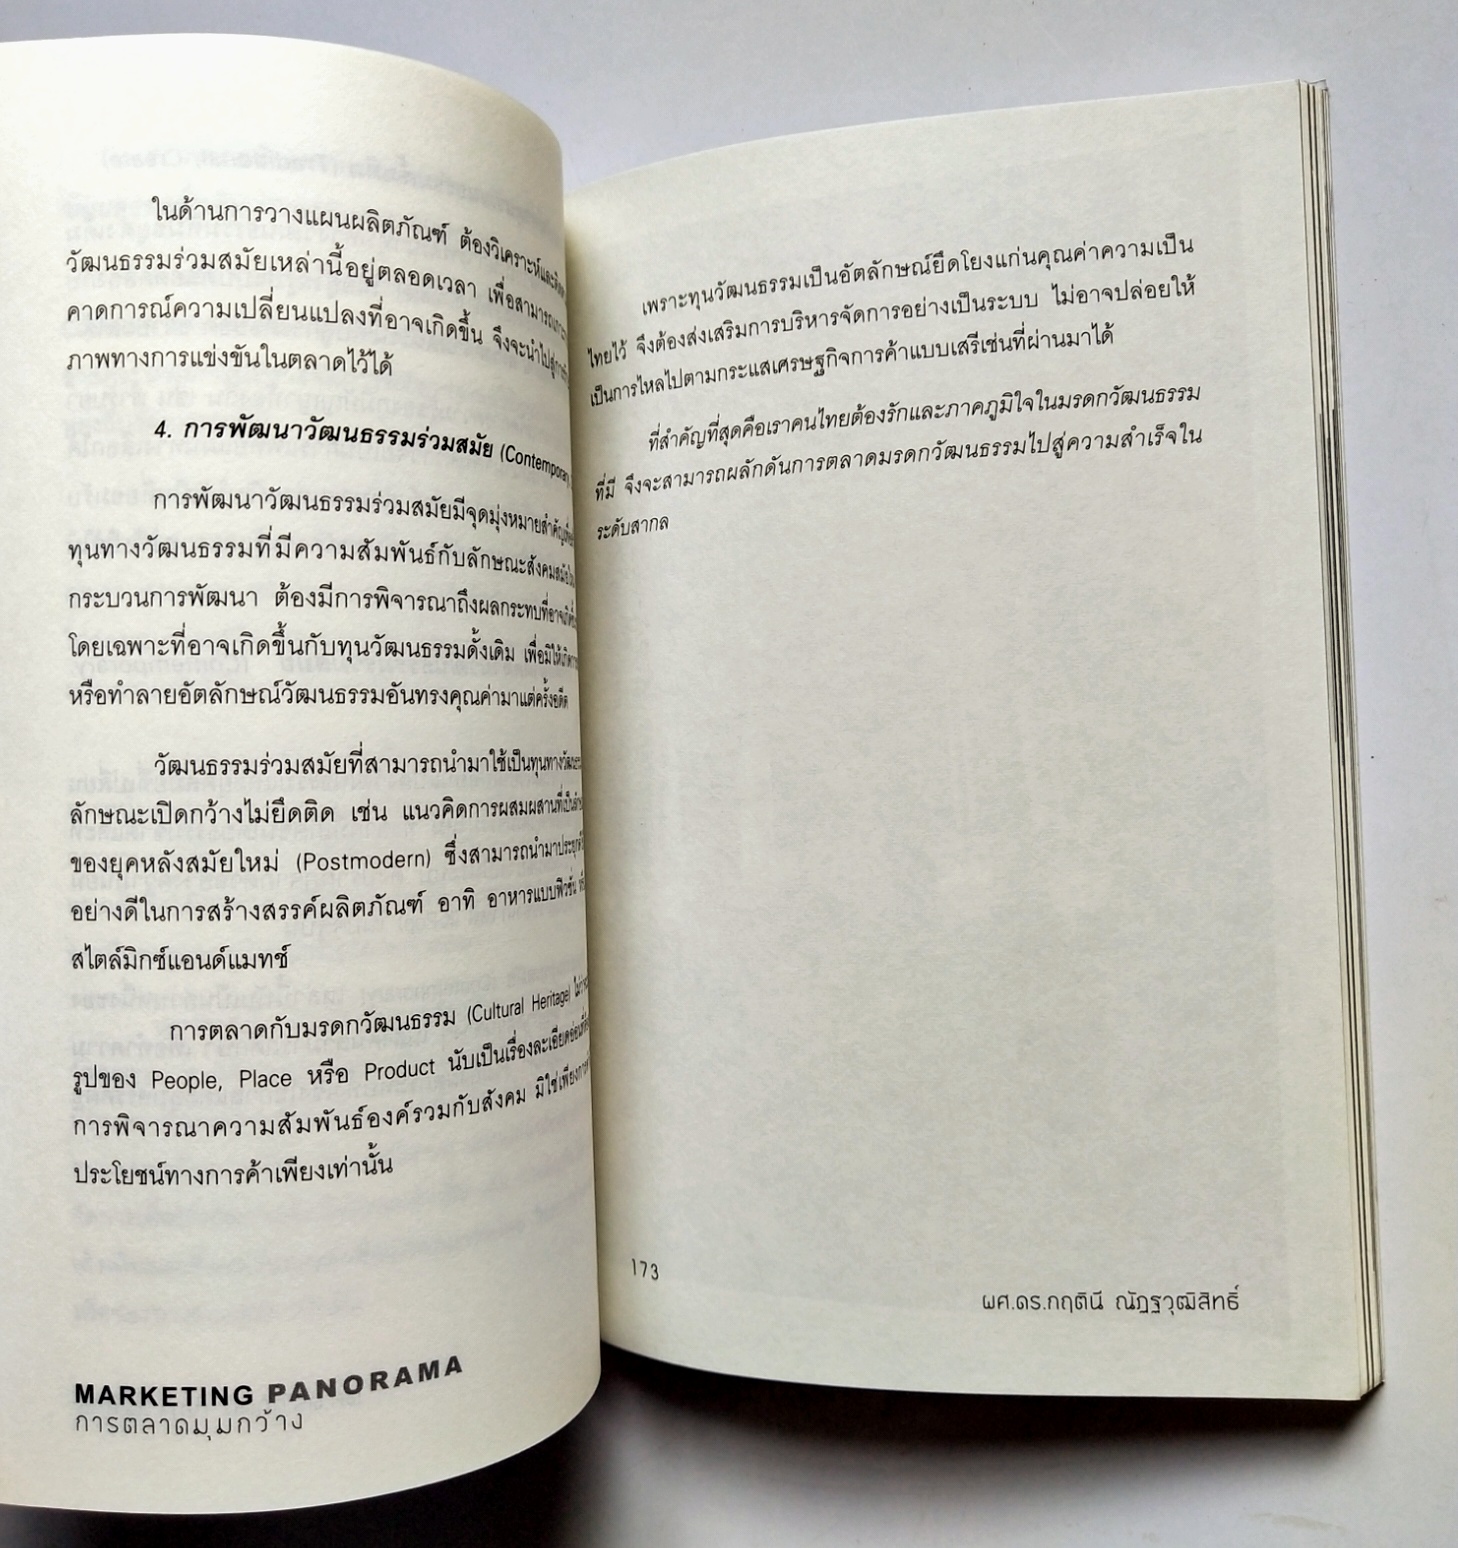 ในด้านการวางแผนผลิตภัณฑ์ ต้องวิเคราะห์และติดตาม
วัฒนธรรมร่วมสมัยเหล่านี้อยู่ตลอดเวลา เพื่อสามารถ
คาดการณ์ความเปลี่ยนแปลงที่อาจเกิดขึ้น จึงจะนำไปสู่
ภาพทางการแข่งขันในตลาดไว้ได้
4. การพัฒนาวัฒนธรรมร่วมสมัย (Contemporary
การพัฒนาวัฒนธรรมร่วมสมัยมีจุดมุ่งหมายสำคัญ
ทุนทางวัฒนธรรมที่มีความสัมพันธ์กับลักษณะสังคมสมัยใหม่
กระบวนการพัฒนา ต้องมีการพิจารณาถึงผลกระทบที่อาจเกิดขึ้น
โดยเฉพาะที่อาจเกิดขึ้นกับทุนวัฒนธรรมดั้งเดิม เพื่อมิให้เกิด
หรือทำลายอัตลักษณ์วัฒนธรรมอันทรงคุณค่ามาแต่ครั้งอดีต
วัฒนธรรมร่วมสมัยที่สามารถนำมาใช้เป็นทุนทางวัฒนธรรม
ลักษณะเปิดกว้างไม่ยึดติด เช่น แนวคิดการผสมผสานที่เป็น
ของยุคหลังสมัยใหม่ (Postmodern) ซึ่งสามารถนำมาประยุกต์
อย่างดีในการสร้างสรรค์ผลิตภัณฑ์ อาทิ อาหารแบบฟิวชั่น
สไตล์มิกซ์แอนด์แมทช์
การตลาดกับมรดกวัฒนธรรม (Cultural Heritage) ไม่ว่า
รูปของ People, Place หรือ Product นับเป็นเรื่องละเอียดอ่อนที่
การพิจารณาความสัมพันธ์องค์รวมกับสังคม มิใช่เพียง
ประโยชน์ทางการค้าเพียงเท่านั้น
MARKETING PANORAMA
การตลาดมุมกว้าง
เพราะทุนวัฒนธรรมเป็นอัตลักษณ์ยึดโยงแก่นคุณค่าความเป็น
ไทยไว้ จึงต้องส่งเสริมการบริหารจัดการอย่างเป็นระบบ ไม่อาจปล่อยให้
เป็นการไหลไปตามกระแสเศรษฐกิจการค้าแบบเสรีเช่นที่ผ่านมาได้
ที่สำคัญที่สุดคือเราคนไทยต้องรักและภาคภูมิใจในมรดกวัฒนธรรม
ที่มี จึงจะสามารถผลักดันการตลาดมรดกวัฒนธรรมไปสู่ความสำเร็จใน
ระดับสากล
173
ผศ.ดร.กฤตินี ณัฏฐวุฒิสิทธิ์